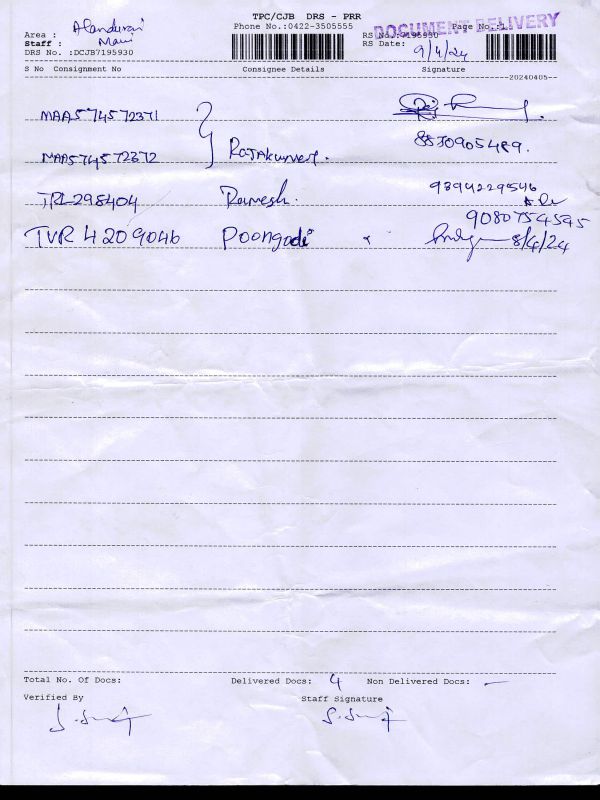 TPC/CJB DRS - PRR
DOCUMENT DELIVERY
Phone No.:0422-3505555
Page No.:1
Area : Alandurai
RS No.:7195930
Staff : Mani
RS Date: 9/4/24
DRS No. :DCJB7195930
S No Consignment No Consignee Details Signature
20240405
MAA574572371
MAA574572372 Rajakumari. 8530905489.
TRL298404 Ramesh. 9394229546
9080754545
TVR 4209046 Poongodi 8/4/24
Total No. Of Docs: Delivered Docs: 4 Non Delivered Docs: —
Verified By Staff Signature